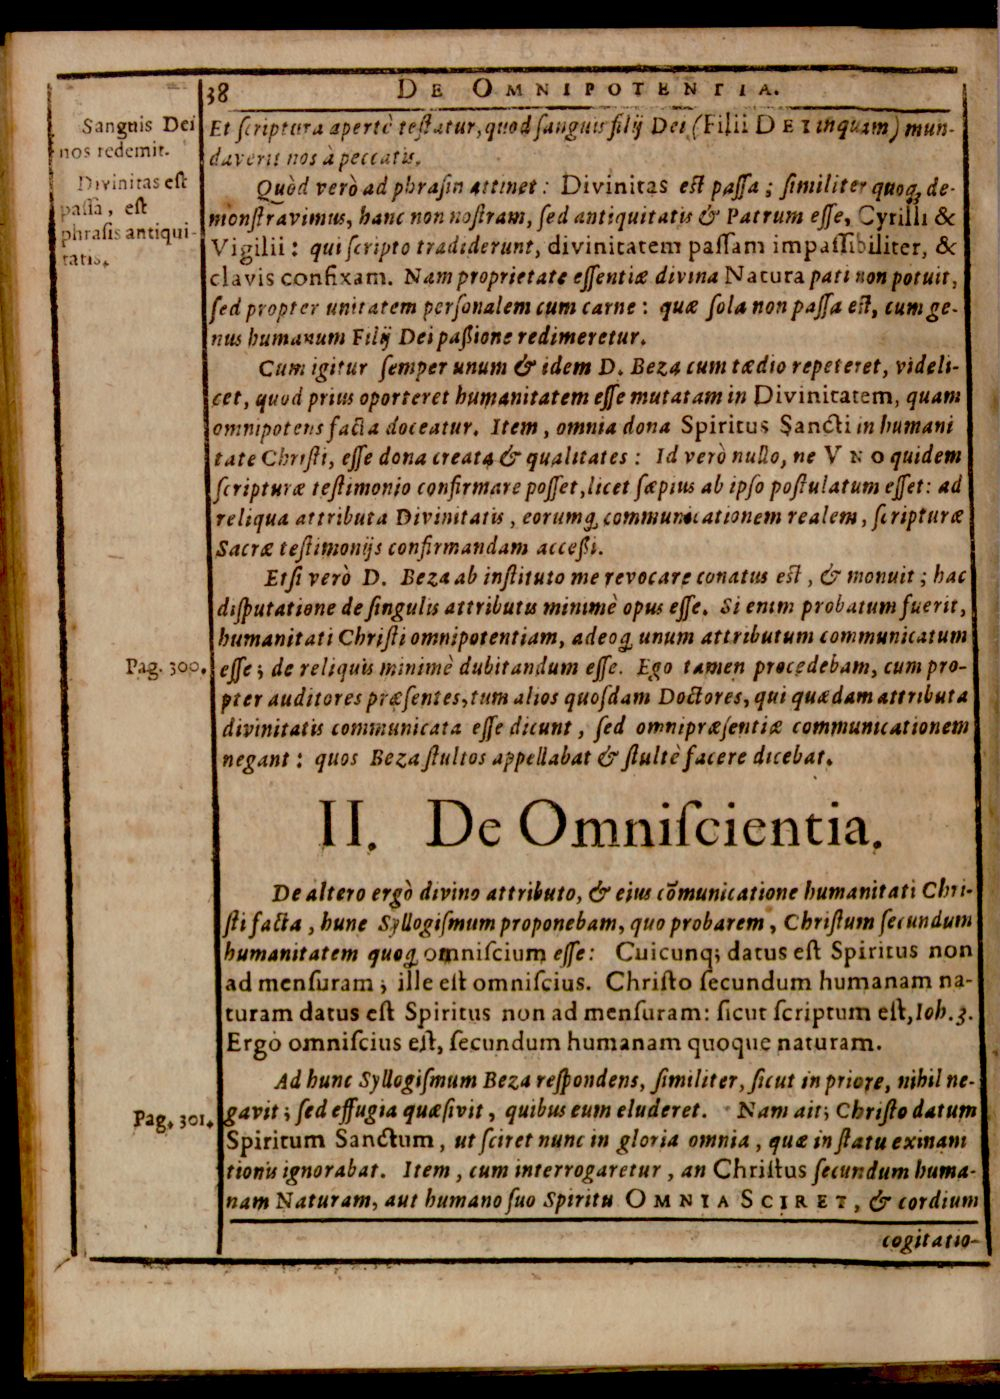 38
DE OMNIPOTENTIA.
Sanguis Dei
nos redemit.
Divinitas eſt
paſſa, eſt
phraſis antiqui-
tatis.
Et ſcriptura apertè teſtatur, quod ſanguis filij Dei (Filii DEI inquam) mun-
daverit nos à peccatis.
Quòd verò ad phraſin attinet: Divinitas eſt paſſa; ſimiliter quoq; de-
monſtravimus, hanc non noſtram, ſed antiquitatis & Patrum eſſe, Cyrilli &
Vigilii: qui ſcripto tradiderunt, divinitatem paſſam impaſſibiliter, &
clavis confixam. Nam proprietate eſſentiæ divina Natura pati non potuit,
ſed propter unitatem perſonalem cum carne: quæ ſola non paſſa eſt, cum ge-
nus humanum Filij Dei paßione redimeretur.
Cum igitur ſemper unum & idem D. Beza cum tædio repeteret, videli-
cet, quod prius oporteret humanitatem eſſe mutatam in Divinitatem, quam
omnipotens facta doceatur. Item, omnia dona Spiritus Sancti in humani
tate Chriſti, eſſe dona creata & qualitates: Id verò nullo, ne VNO quidem
ſcripturæ teſtimonio confirmare poſſet, licet ſæpius ab ipſo poſtulatum eſſet: ad
reliqua attributa Divinitatis, eorumq; communicationem realem, ſcripturæ
Sacræ teſtimonijs confirmandam acceßi.
Etſi verò D. Beza ab inſtituto me revocare conatus eſt, & monuit; hac
diſputatione de ſingulis attributis minimè opus eſſe. Si enim probatum fuerit,
humanitati Chriſti omnipotentiam, adeoq; unum attributum communicatum
Pag. 300.
eſſe; de reliquis minimè dubitandum eſſe. Ego tamen procedebam, cum pro-
pter auditores præſentes, tum alios quoſdam Doctores, qui quædam attributa
divinitatis communicata eſſe dicunt, ſed omnipræſentiæ communicationem
negant: quos Beza ſtultos appellabat & ſtultè facere dicebat.
II. De Omniſcientia.
De altero ergò divino attributo, & ejus cõmunicatione humanitati Chri-
ſti facta, hunc Syllogiſmum proponebam, quo probarem, Chriſtum ſecundum
humanitatem quoq; omniſcium eſſe: Cuicunq; datus eſt Spiritus non
ad menſuram; ille eſt omniſcius. Chriſto ſecundum humanam na-
turam datus eſt Spiritus non ad menſuram: ſicut ſcriptum eſt, Ioh. 3.
Ergo omniſcius eſt, ſecundum humanam quoque naturam.
Ad hunc Syllogiſmum Beza reſpondens, ſimiliter, ſicut in priore, nihil ne-
Pag. 301.
gavit; ſed effugia quæſivit, quibus eum eluderet. Nam ait; Chriſto datum
Spiritum Sanctum, ut ſciret nunc in gloria omnia, quæ in ſtatu exinani
tionis ignorabat. Item, cum interrogaretur, an Chriſtus ſecundum huma-
nam Naturam, aut humano ſuo Spiritu OMNIA SCIRET, & cordium
cogitatio-